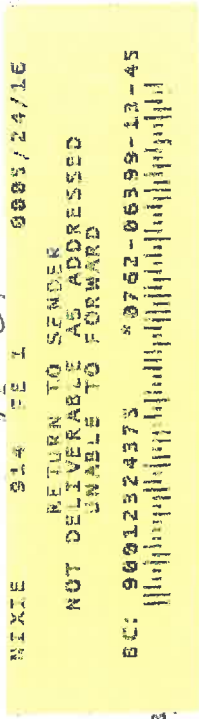 NIXIE 914 FE 1 0009/24/16
RETURN TO SENDER
NOT DELIVERABLE AS ADDRESSED
UNABLE TO FORWARD
BC: 90012324373 *0762-06399-13-45